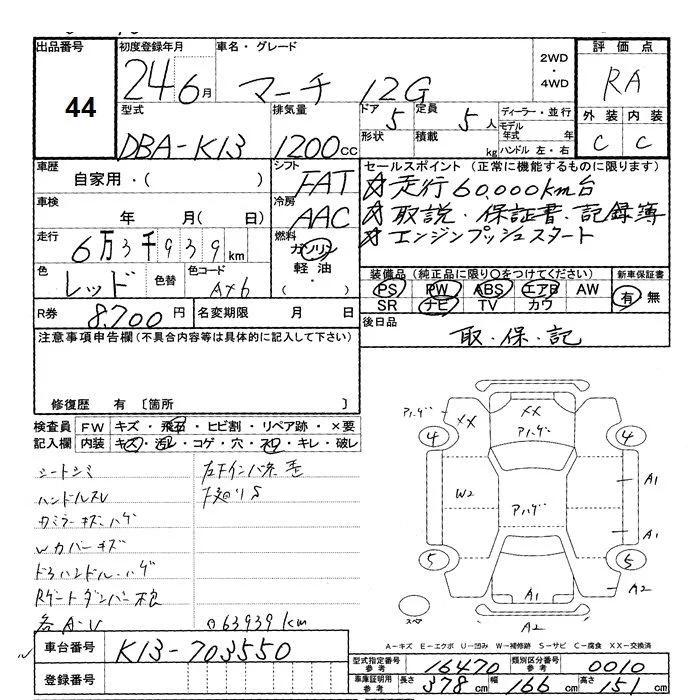 出品番号
44
初度登録年月
24 6月
車名・グレード
マーチ 12G
2WD
・
4WD
評価点
RA
外装 内装
C C
型式
DBA-K13
排気量
1200cc
ドア 5
形状
定員 5人
積載 kg
ディーラー・並行
モデル年式 年
ハンドル 左・右
車歴
自家用・( )
シフト
FAT
車検
年 月( 日)
冷房
AAC
走行
6万3千939km
燃料
ガソリン
軽油
( ・ )
色
レッド
色替
色コード
AX6
R券 8,700円
名変期限 月 日
セールスポイント (正常に機能するものに限ります)
☆走行60,000km台
☆取説・保証書・記録簿
☆エンジンプッシュスタート
装備品(純正品に限り○をつけてください)
新車保証書
PS PW ABS エアB AW
SR ナビ TV カワ
有 無
後日品
取・保・記
注意事項申告欄(不具合内容等は具体的に記入して下さい)
修復歴 有〔箇所 〕
検査員 FW キズ・飛石・ヒビ割・リペア跡・×要
記入欄 内装 キズ・汚レ・コゲ・穴・凹・キレ・破レ
シートシミ
ハンドルスレ
ドアハンドル・ハゲ
63939km
車台番号 K13-703550
登録番号
アハゲ XX XX アハゲ
4 4
W2 アハゲ A1
A1
5 5
A1 A2
スペア A2
A-キズ E-エクボ U-凹み W-補修跡 S-サビ C-腐食 XX-交換済
型式指定番号 参考 16470 類別区分番号 参考 0010
車庫証明用 参考 長さ 378cm 幅 166cm 高さ 151cm